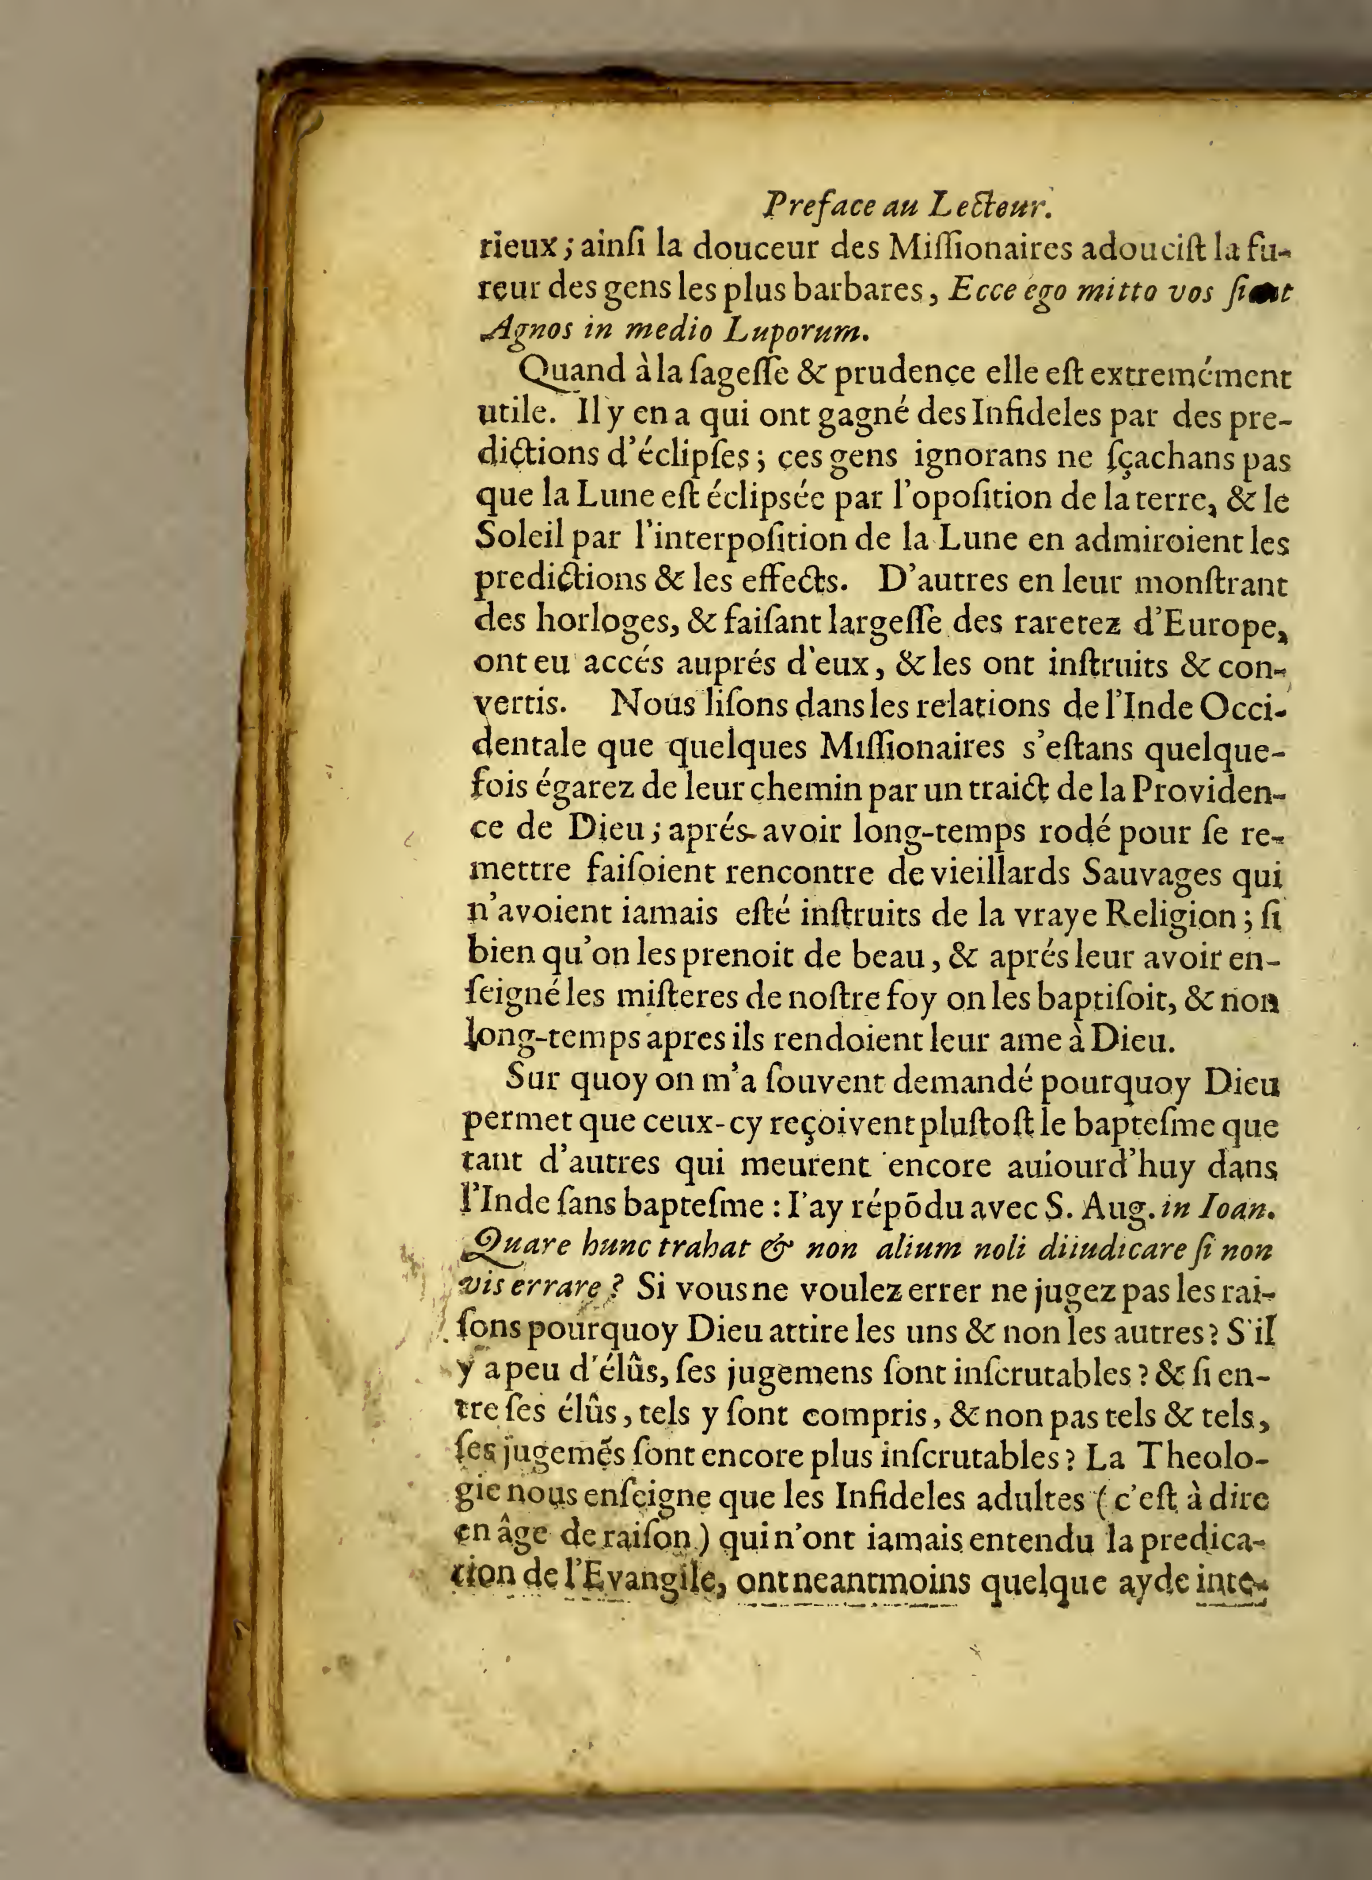 Preface au Lecteur.
rieux; ainſi la douceur des Miſſionaires adouciſt la fu-
reur des gens les plus barbares, Ecce ego mitto vos
Agnos in medio Luporum.
Quand à la ſageſſe & prudence elle eſt extremément
utile. Il y en a qui ont gagné des Infideles par des pre-
dictions d'éclipſes; ces gens ignorans ne ſçachans pas
que la Lune eſt éclipsée par l'opoſition de la terre, & le
Soleil par l'interpoſition de la Lune en admiroient les
predictions & les effects. D'autres en leur monſtrant
des horloges, & faiſant largeſſe des raretez d'Europe,
ont eu accés auprés d'eux, & les ont inſtruits & con-
vertis. Nous liſons dans les relations de l'Inde Occi-
dentale que quelques Miſſionaires s'eſtans quelque-
fois égarez de leur chemin par un traict de la Providen-
ce de Dieu; aprés avoir long-temps rodé pour ſe re-
mettre faiſoient rencontre de vieillards Sauvages qui
n'avoient iamais eſté inſtruits de la vraye Religion; ſi
bien qu'on les prenoit de beau, & aprés leur avoir en-
ſeigné les miſteres de noſtre foy on les baptiſoit, & non
long-temps apres ils rendoient leur ame à Dieu.
Sur quoy on m'a ſouvent demandé pourquoy Dieu
permet que ceux-cy reçoivent pluſtoſt le bapteſme que
tant d'autres qui meurent encore auiourd'huy dans
l'Inde ſans bapteſme: I'ay répōdu avec S. Aug. in Ioan.
Quare hunc trahat & non alium noli diiudicare ſi non
vis errare? Si vous ne voulez errer ne jugez pas les rai-
ſons pourquoy Dieu attire les uns & non les autres? S'il
y a peu d'élûs, ſes jugemens ſont inſcrutables? & ſi en-
tre ſes élûs, tels y ſont compris, & non pas tels & tels,
ſes jugemẽs ſont encore plus inſcrutables? La Theolo-
gie nous enſeigne que les Infideles adultes (c'eſt à dire
en âge de raiſon) qui n'ont iamais entendu la predica-
tion de l'Evangile, ont neantmoins quelque ayde inte-